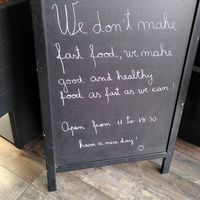 We don't make
fast food, we make
good and healthy
food as fast as we can!
Open from 11 to 19:30
have a nice day!